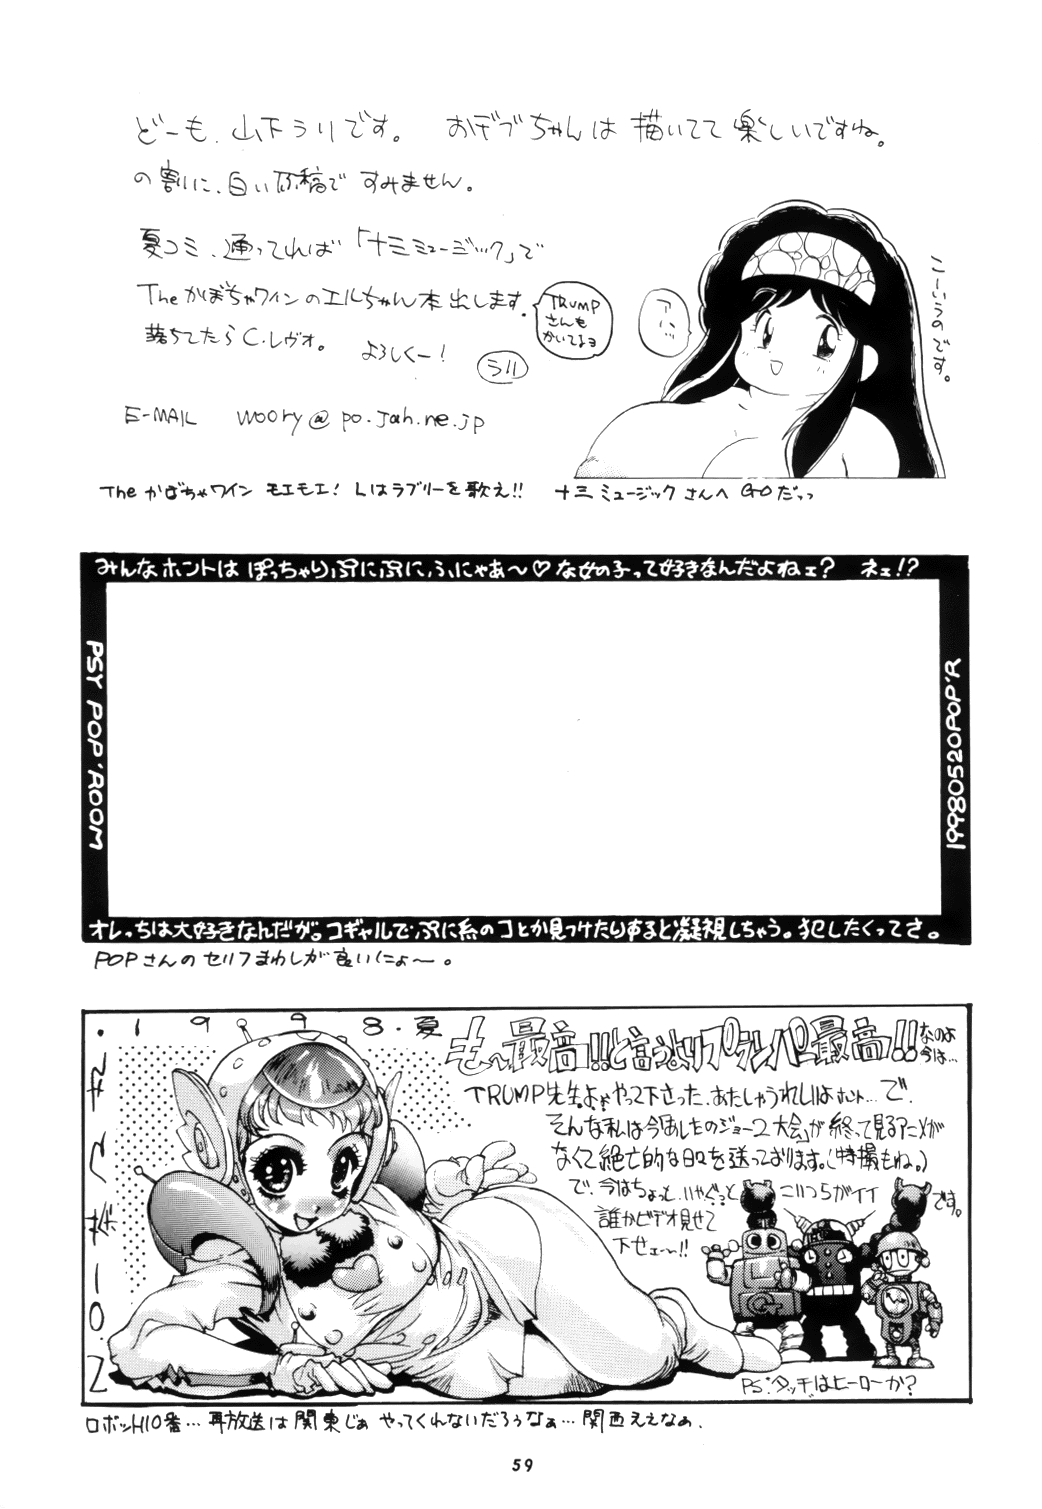 どーも、山下うりです。 おデブちゃんは描いてて楽しいですね。
の割に、白い原稿ですみません。
夏コミ、通ってれば「十三ミュージック」で
Theかぼちゃワインのエルちゃん本出します。
TRUMP
さんも
かいてるヨ
落ちてたらC.レヴォ。 よろしくー!
うり
E-MAIL woory@po.jah.ne.jp
こーいうのです。
Theかぼちゃワイン モエモエ! Lはラブリーを歌え!! 十三ミュージックさんへGOだっっ
みんなホントはぽっちゃりぷにぷにふにゃあ〜♡な女の子って好きなんだよねェ? ネェ!?
PSY POP'ROOM
19980520POP'R
オレっちは大好きなんだが。コギャルでぷに系のコとか見つけたりすると凝視しちゃう。犯したくってさ。
POPさんのセリフまわしが良いにょ〜。
.1998.夏
も〜最高!!と言うよりプランパー最高!!なのよ
今は…
TRUMP先生よくぞやって下さった、あたしゃうれしいよホント…で、
そんな私は今「あしたのジョー2大会」が終って見るアニメが
なくて絶亡的な日々を送っております。(特撮もね。)
で、今はちょっと
こいつらがイイ
です。
誰かビデオ見せて
下せェ〜!!
PS:タッチはヒーローか?
ロボット110番…再放送は関東じゃやってくれないだろうなぁ…関西ええなぁ.
59